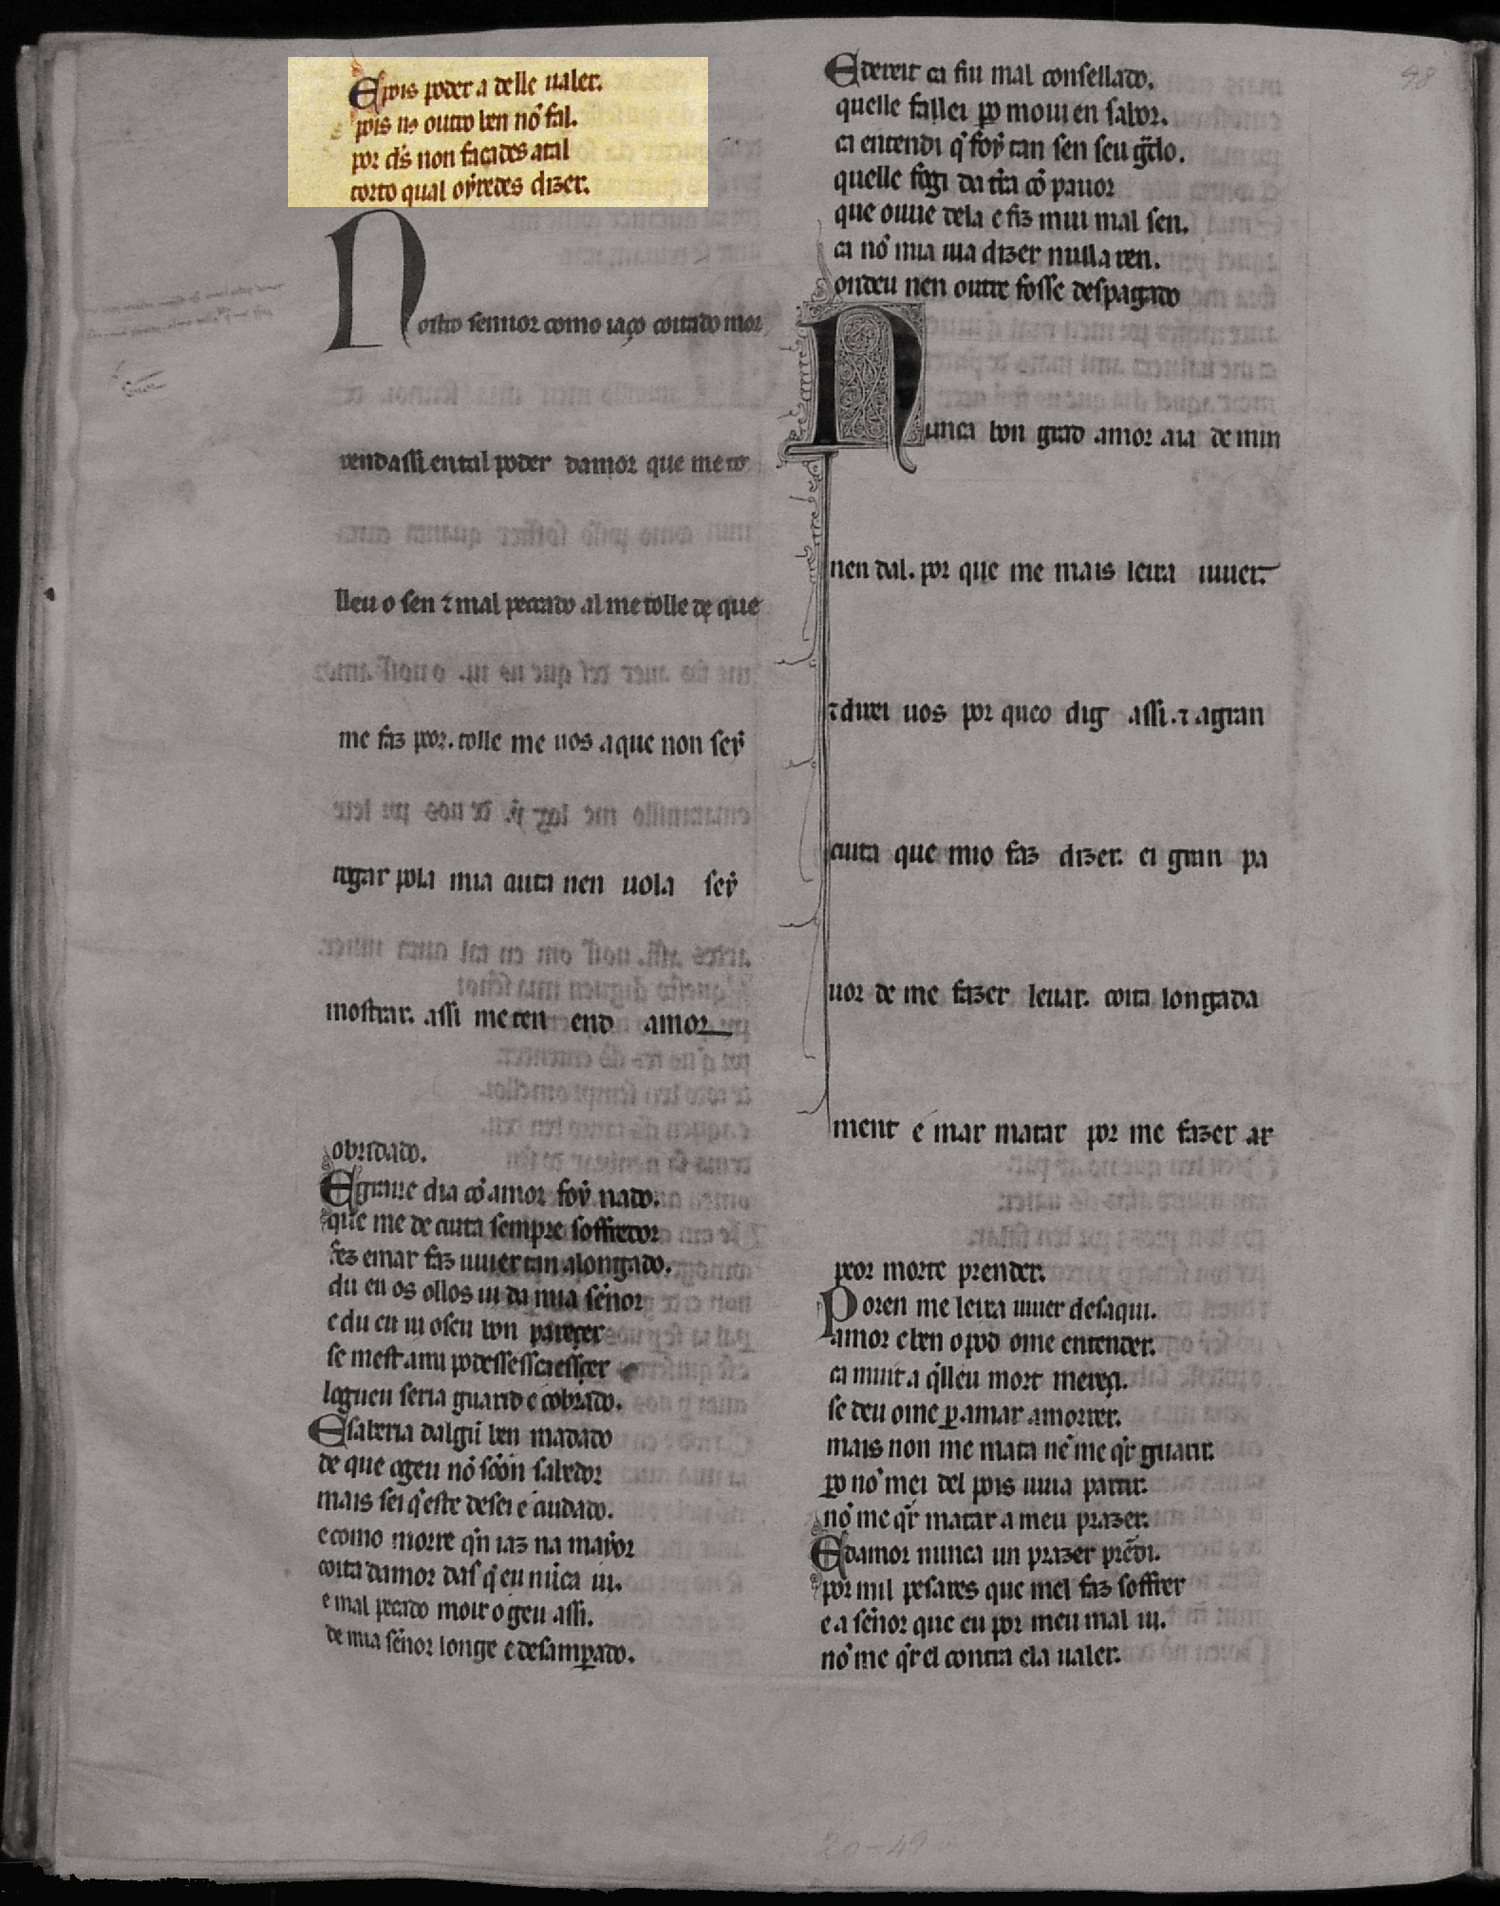 Epois poder a delle ualer.
pois uos outro ben nõ fal.
por ds non façades atal
torto qual oyredes dizer.
Nostro sennor como iaço coitado mor
rend assi en tal poder damor que me to
lleu o sen ⁊ mal pecado al me tolle de que
me faz peor. tolle me uos a que non seý
rogar pola mia cuita nen uola seý
mostrar. assi me ten end amor
obridado.
Egraue dia cõ amor foý nado.
que me de cuita sempre soffredor
fez e mar faz uiuer tan alongado.
du eu os ollos ui da mia señor
e du eu ui o seu bon pareçer
se mest a mi podesse
logu eu seria guarid e cobrado.
E saberia dalgũ ben mãdado
de que og eu nõ sõon sabedor
mais sei q̃ este desei e cuidado.
e como morre q̃n iaz na mayor
coita damor das q̃ eu nũca ui.
e mal pecado moir og eu assi.
de mia señor longe e desamparado.
E dereit ei ca fiu mal consellado.
quelle fallei ꝑo mouuen sabor.
ca entendi q̃ foý tan sen seu grado.
quelle fogi da t̃ra cõ pauor
que ouue dela e fiz mui mal sen.
ca nõ mia uia dizer nulla ren.
onde u nen outre fosse despagado
Nunca bon grad amor aia de min
nen dal. por que me mais leixa uiuer.
⁊ direi uos por que o dig assi. ⁊ a gran
cuita que mio faz dizer. ei gran pa
uor de me fazer leuar. coita longada
ment e mar matar por me fazer ar
peor morte prender.
Poren me leixa uiuer des aqui.
amor e ben o pod ome entender.
ca muit a q̃ lleu mort mereçi.
se deu ome ꝑ amar a morrer.
mais non me mata nẽ me q̃r guarir.
ꝑo nõ mei del pois uiua partir.
nõ me q̃r matar a meu prazer.
E damor nunca un prazer prẽdi.
por mil pesares que mel faz soffrer
e a señor que eu por meu mal ui.
nõ me q̃r el contra ela ualer.
98
20-49